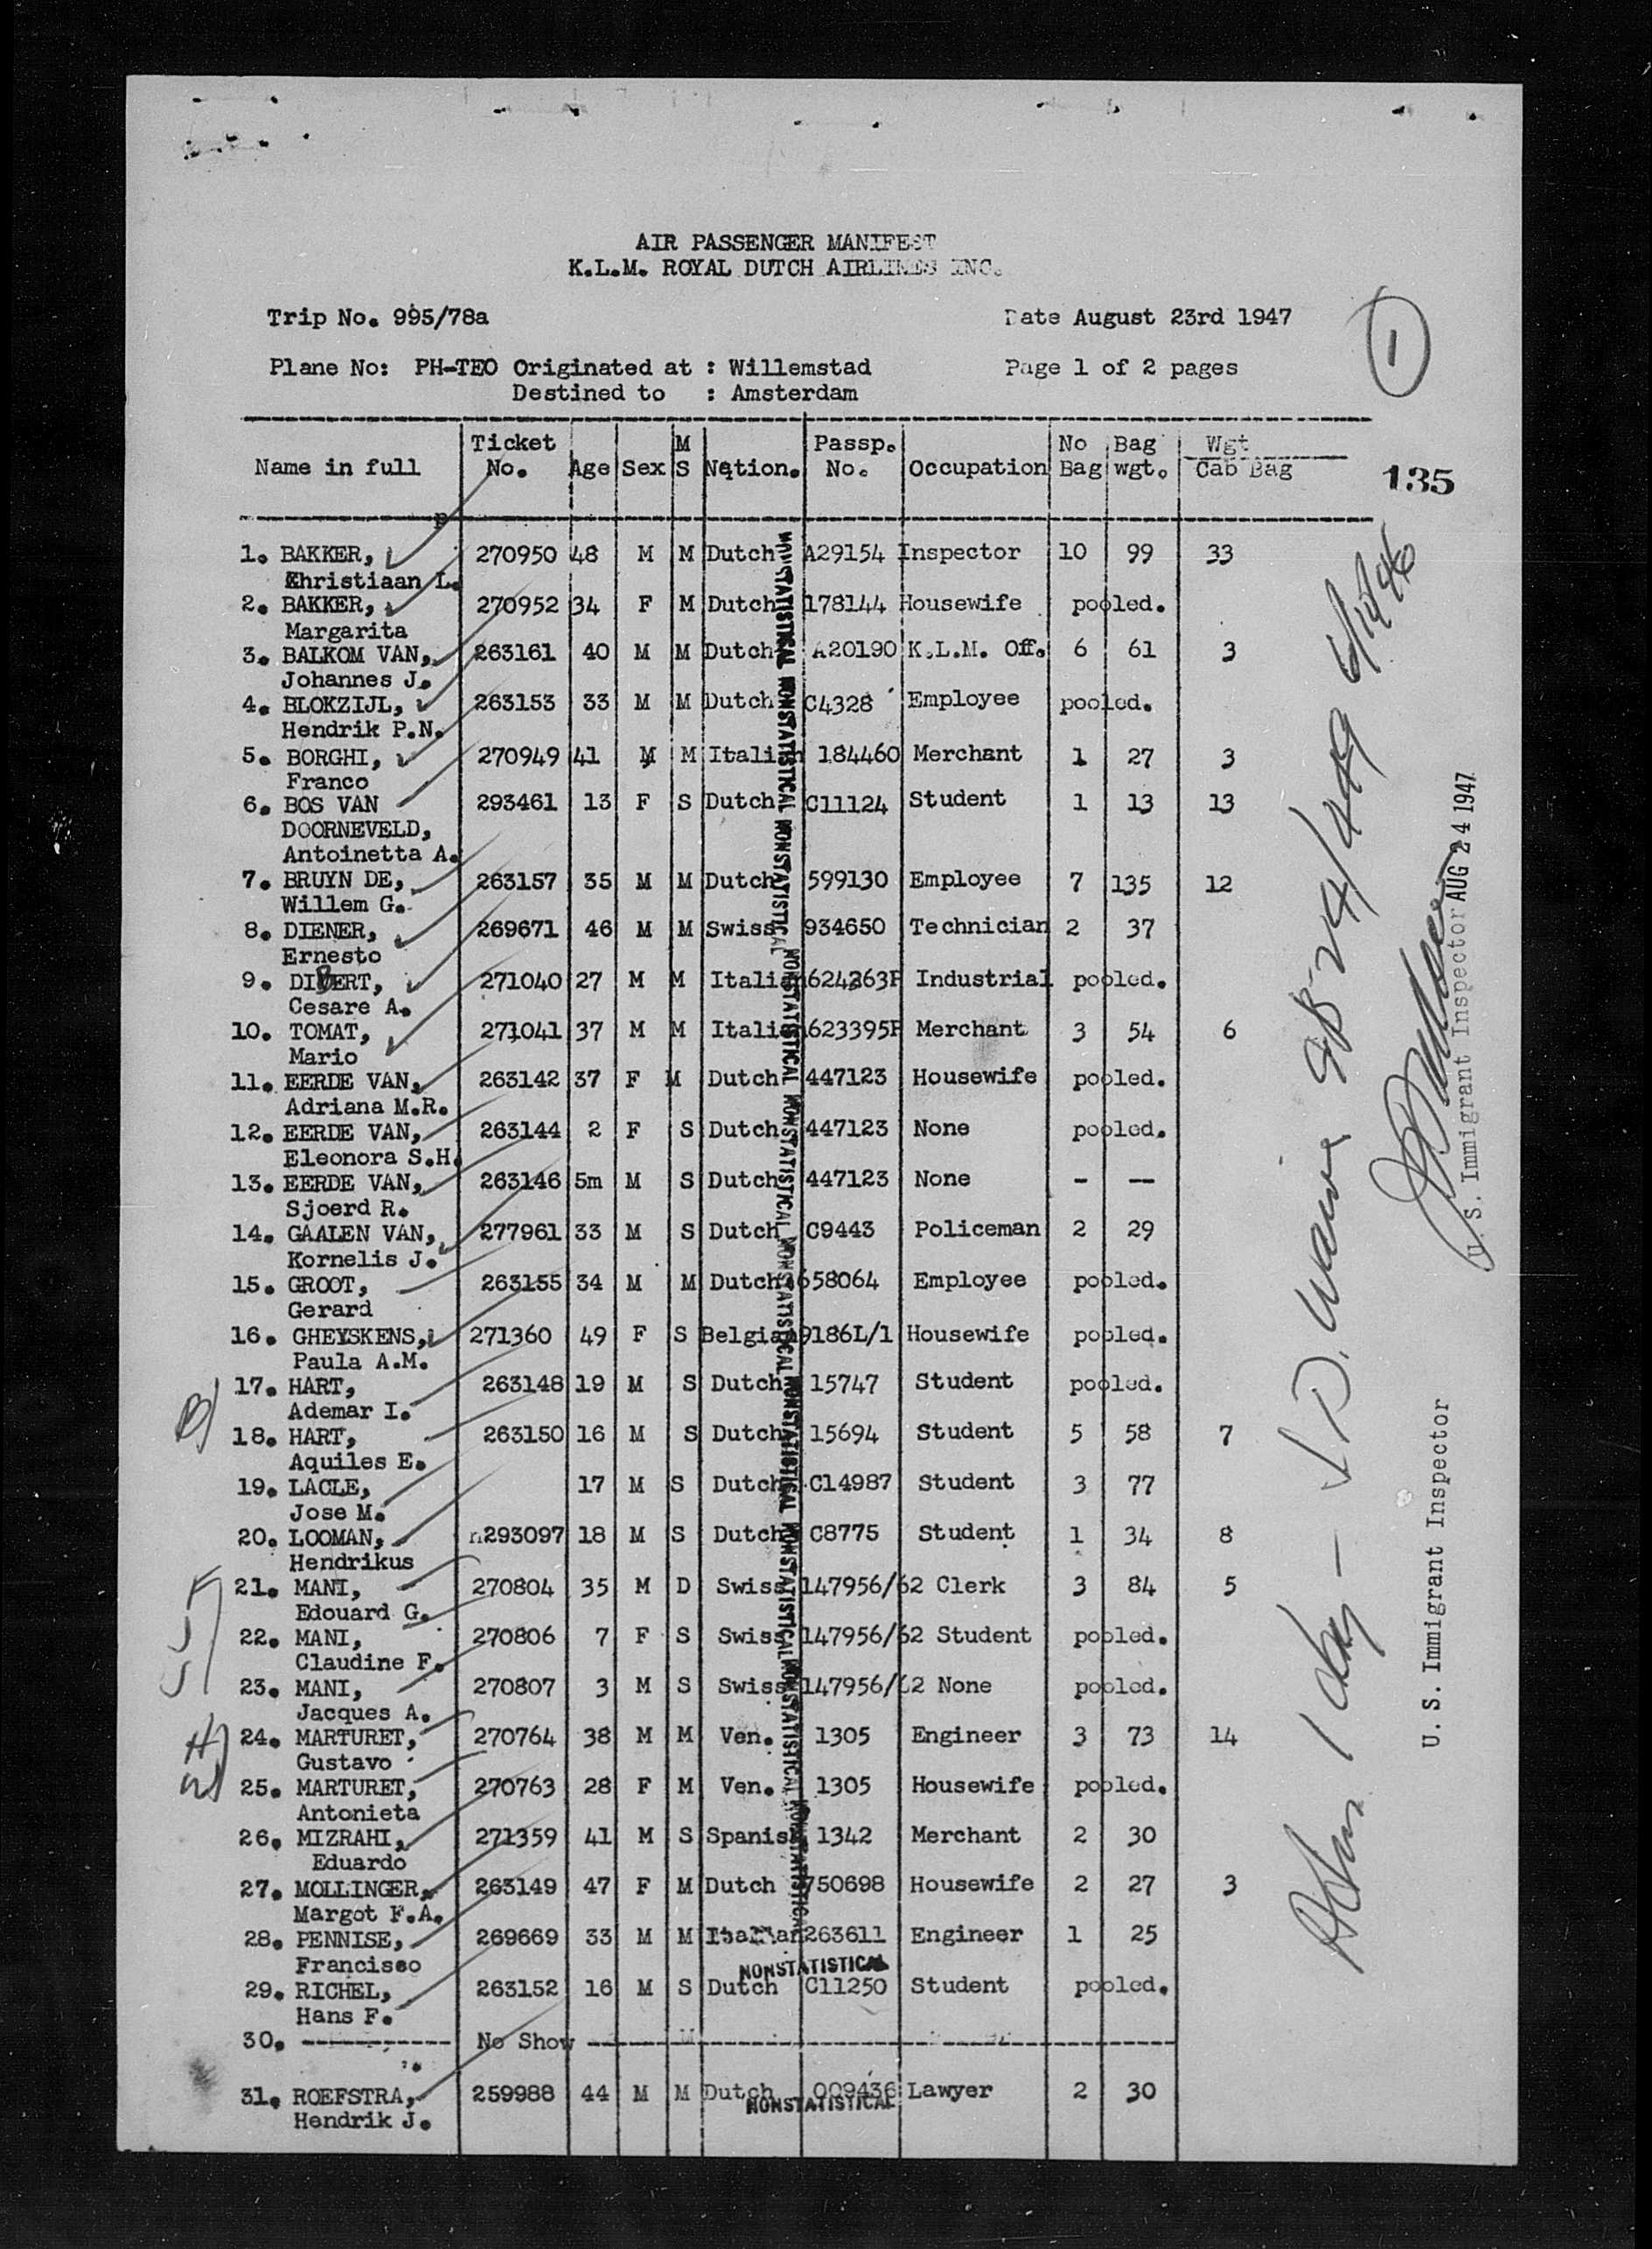 AIR PASSENGER MANIFEST
K.L.M. ROYAL DUTCH AIRLINES INC.
Trip No. 995/78a Date August 23rd 1947
1
Plane No: PH-TEO Originated at : Willemstad Page 1 of 2 pages
Destined to : Amsterdam
Ticket M Passp. No Bag Wgt
Name in full No. Age Sex S Nation. No. Occupation Bag wgt. Cab Bag
135
1. BAKKER, 270950 48 M M Dutch A29154 Inspector 10 99 33
Christiaan L.
2. BAKKER, 270952 34 F M Dutch 178144 Housewife pooled.
Margarita
3. BALKOM VAN, 263161 40 M M Dutch A20190 K.L.M. Off. 6 61 3
Johannes J.
4. BLOKZIJL, 263153 33 M M Dutch C4328 Employee pooled.
Hendrik P.N.
5. BORGHI, 270949 41 M M Italian 184460 Merchant 1 27 3
Franco
6. BOS VAN 293461 13 F S Dutch C11124 Student 1 13 13
DOORNEVELD,
Antoinetta A.
7. BRUYN DE, 263157 35 M M Dutch 599130 Employee 7 135 12
Willem G.
8. DIENER, 269671 46 M M Swiss 934650 Technician 2 37
Ernesto
9. DIBERT, 271040 27 M M Italian 624263P Industrial pooled.
Cesare A.
10. TOMAT, 271041 37 M M Italian 623395P Merchant 3 54 6
Mario
11. EERDE VAN, 263142 37 F M Dutch 447123 Housewife pooled.
Adriana M.R.
12. EERDE VAN, 263144 2 F S Dutch 447123 None pooled.
Eleonora S.H.
13. EERDE VAN, 263146 5m M S Dutch 447123 None - --
Sjoerd R.
14. GAALEN VAN, 277961 33 M S Dutch C9443 Policeman 2 29
Kornelis J.
15. GROOT, 263155 34 M M Dutch 658064 Employee pooled.
Gerard
16. GHEYSKENS, 271360 49 F S Belgian 9186L/1 Housewife pooled.
Paula A.M.
17. HART, 263148 19 M S Dutch 15747 Student pooled.
Ademar I.
18. HART, 263150 16 M S Dutch 15694 Student 5 58 7
Aquiles E.
19. LACLE, 17 M S Dutch C14987 Student 3 77
Jose M.
20. LOOMAN, 293097 18 M S Dutch C8775 Student 1 34 8
Hendrikus
21. MANI, 270804 35 M D Swiss 147956/62 Clerk 3 84 5
Edouard G.
22. MANI, 270806 7 F S Swiss 147956/62 Student pooled.
Claudine F.
23. MANI, 270807 3 M S Swiss 147956/62 None pooled.
Jacques A.
24. MARTURET, 270764 38 M M Ven. 1305 Engineer 3 73 14
Gustavo
25. MARTURET, 270763 28 F M Ven. 1305 Housewife pooled.
Antonieta
26. MIZRAHI, 271359 41 M S Spanish 1342 Merchant 2 30
Eduardo
27. MOLLINGER, 263149 47 F M Dutch 750698 Housewife 2 27 3
Margot F.A.
28. PENNISE, 269669 33 M M Italian 263611 Engineer 1 25
Francisco
NONSTATISTICAL
29. RICHEL, 263152 16 M S Dutch C11250 Student pooled.
Hans F.
30. ---------- No Show ----------
31. ROEFSTRA, 259988 44 M M Dutch 009436 Lawyer 2 30
Hendrik J.
NONSTATISTICAL
NONSTATISTICAL NONSTATISTICAL NONSTATISTICAL NONSTATISTICAL NONSTATISTICAL NONSTATISTICAL NONSTATISTICAL NONSTATISTICAL NONSTATISTICAL NONSTATISTICAL
U. S. Immigrant Inspector AUG 24 1947
U. S. Immigrant Inspector